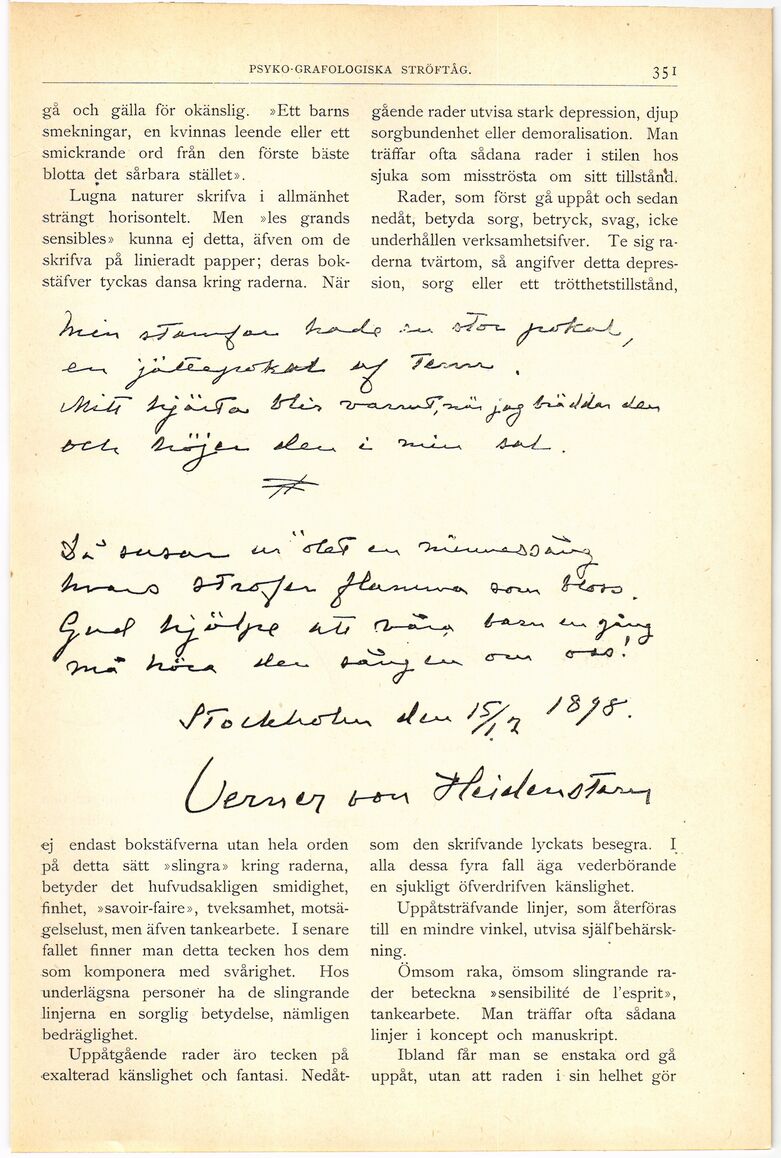 PSYKO-GRAFOLOGISKA STRÖFTÅG.
351
gå och gälla för okänslig. »Ett barns
smekningar, en kvinnas leende eller ett
smickrande ord från den förste bäste
blotta det sårbara stället».
Lugna naturer skrifva i allmänhet
strängt horisontelt. Men »les grands
sensibles» kunna ej detta, äfven om de
skrifva på linieradt papper; deras bok-
stäfver tyckas dansa kring raderna. När
gående rader utvisa stark depression, djup
sorgbundenhet eller demoralisation. Man
träffar ofta sådana rader i stilen hos
sjuka som misströsta om sitt tillstånd.
Rader, som först gå uppåt och sedan
nedåt, betyda sorg, betryck, svag, icke
underhållen verksamhetsifver. Te sig ra-
derna tvärtom, så angifver detta depres-
sion, sorg eller ett trötthetstillstånd,
Min stamfar hade en stor pokal,
en jättepokal af tenn.
Mitt hjärta blir varmt, när jag bräddar den
och höjer den i min sal.
Då susar ur ölet en minnessång
hvars strofer flamma som bloss.
Gud hjälpe att våra barn en gång
må höra den sången om oss!
Stockholm den 15/12 1898.
Verner von Heidenstam
ej endast bokstäfverna utan hela orden
på detta sätt »slingra» kring raderna,
betyder det hufvudsakligen smidighet,
finhet, »savoir-faire», tveksamhet, motsä-
gelselust, men äfven tankearbete. I senare
fallet finner man detta tecken hos dem
som komponera med svårighet. Hos
underlägsna personer ha de slingrande
linjerna en sorglig betydelse, nämligen
bedräglighet.
Uppåtgående rader äro tecken på
exalterad känslighet och fantasi. Nedåt-
som den skrifvande lyckats besegra. I
alla dessa fyra fall äga vederbörande
en sjukligt öfverdrifven känslighet.
Uppåtsträfvande linjer, som återföras
till en mindre vinkel, utvisa själfbehärsk-
ning.
Ömsom raka, ömsom slingrande ra-
der beteckna »sensibilité de l'esprit»,
tankearbete. Man träffar ofta sådana
linjer i koncept och manuskript.
Ibland får man se enstaka ord gå
uppåt, utan att raden i sin helhet gör